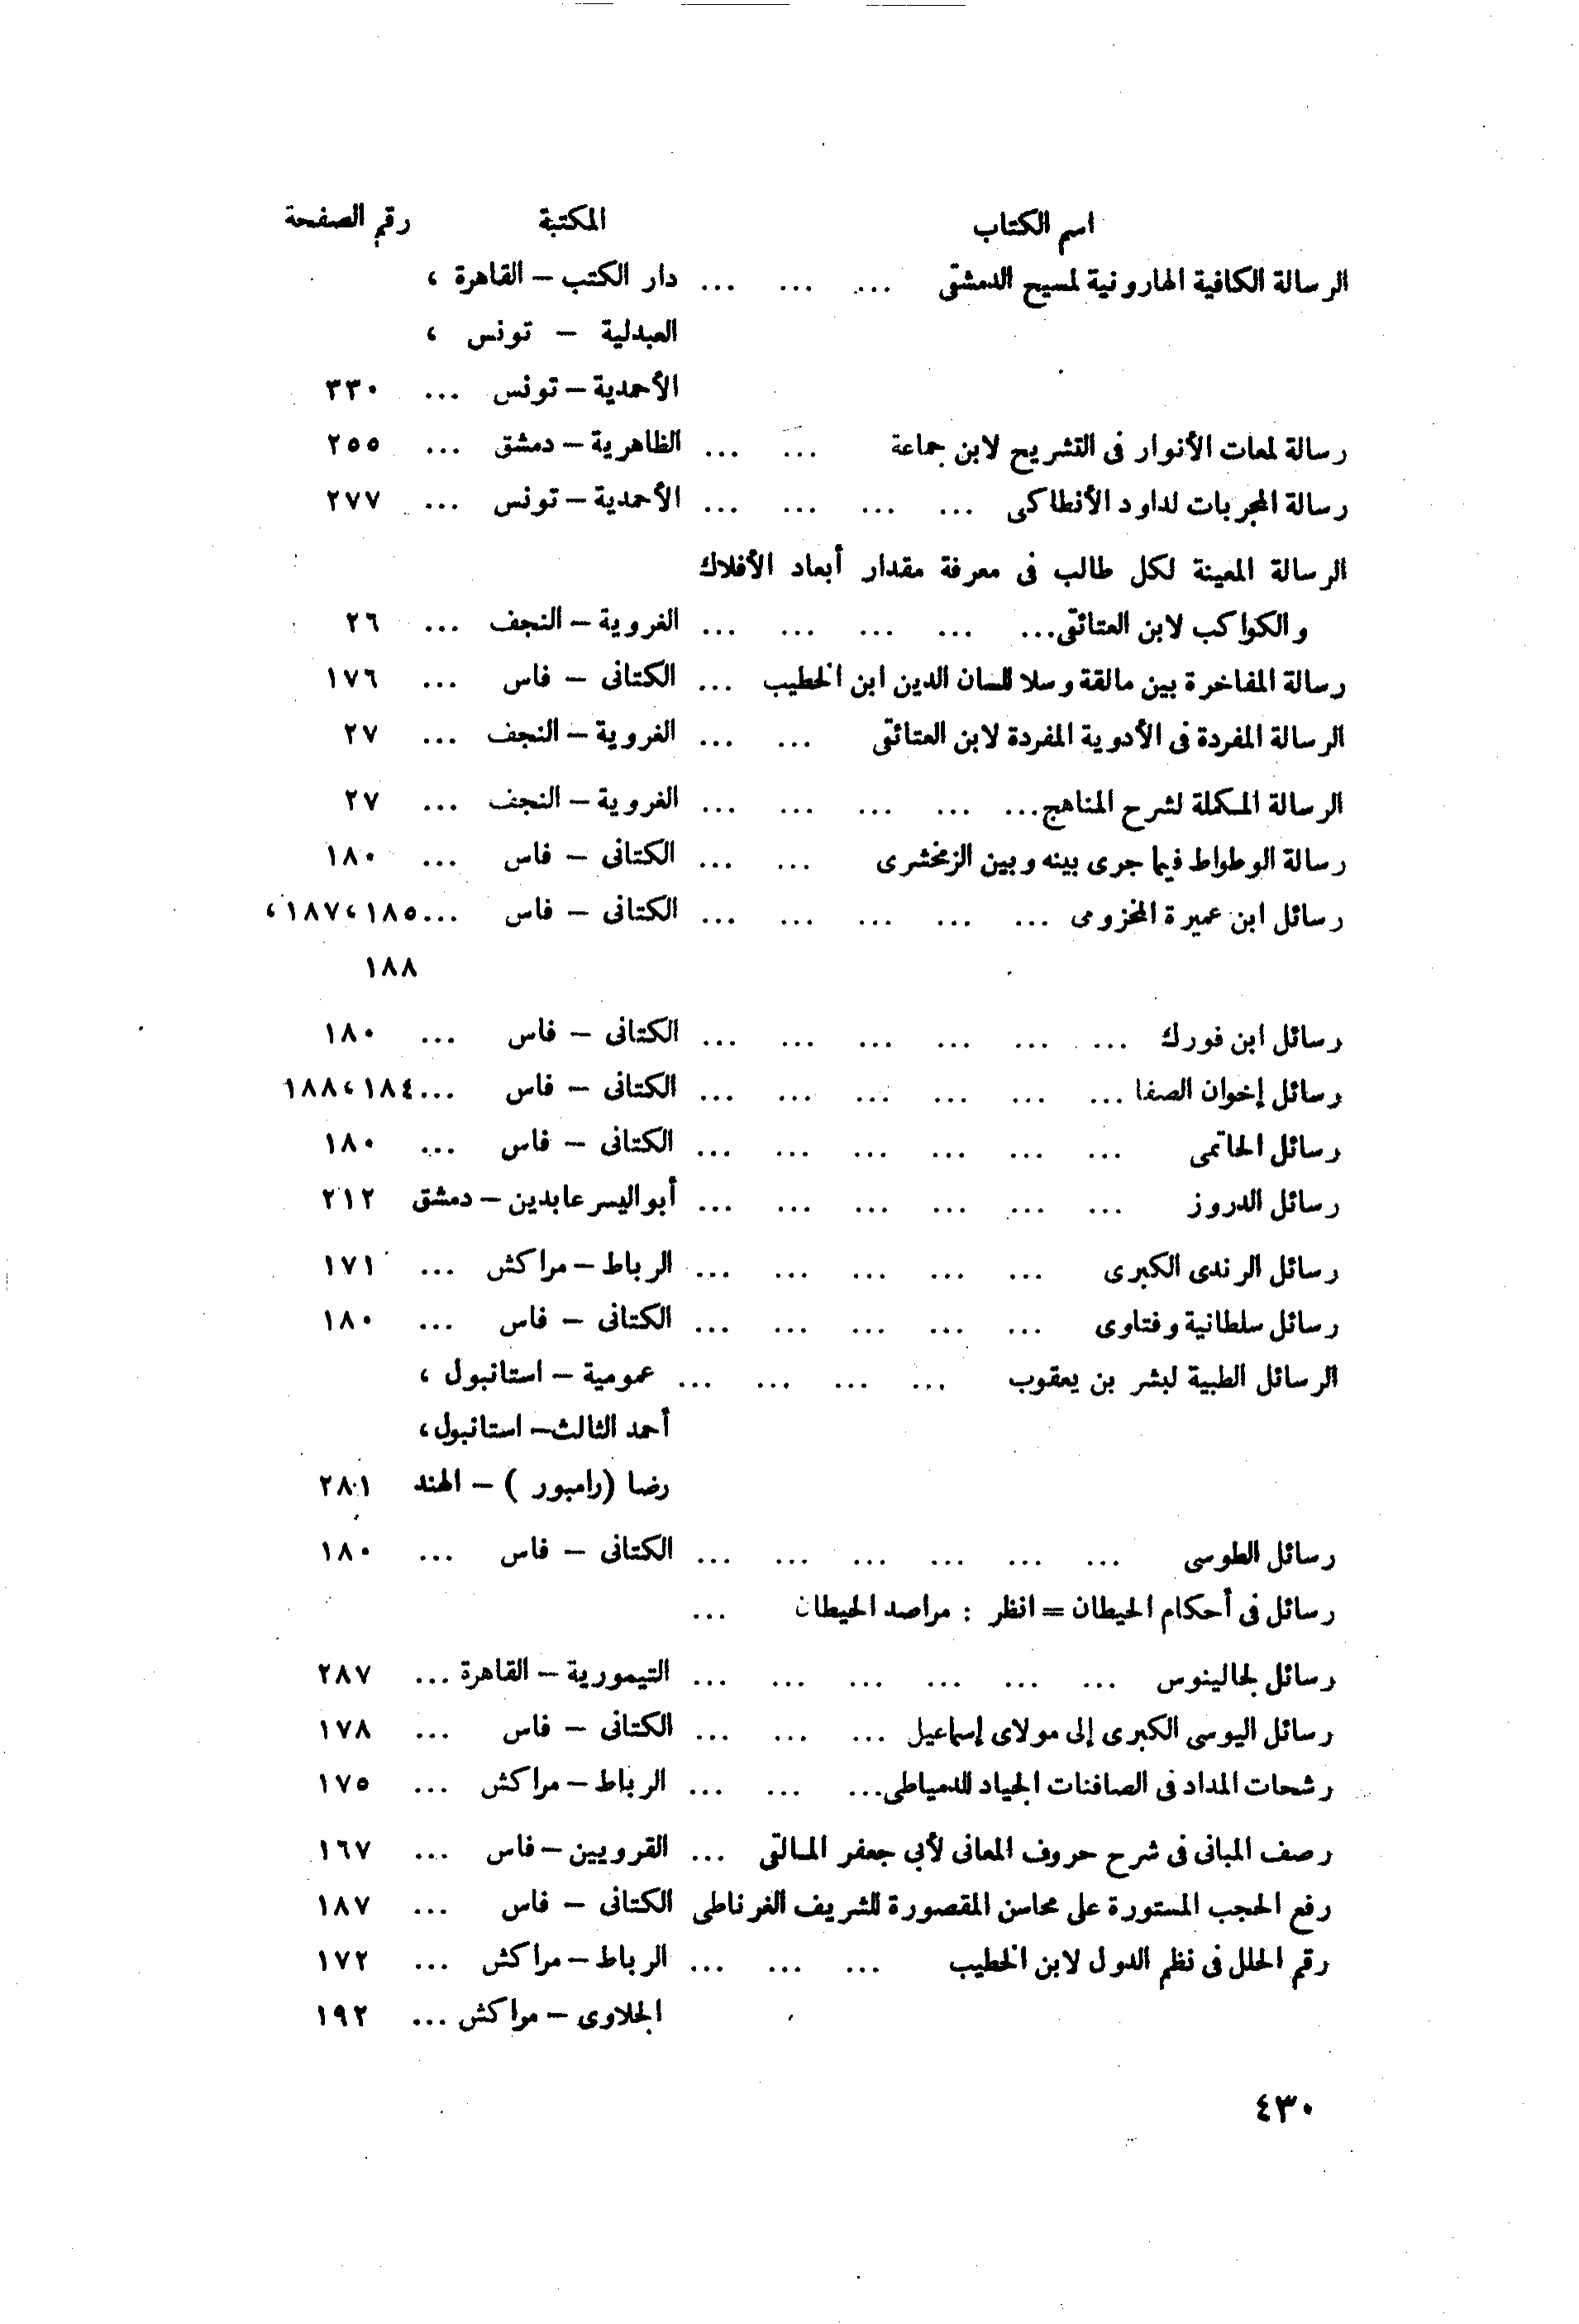 اسم الكتاب المكتبة رقم الصفحة
الرسالة الكافية الهارونية لمسيح الدمشقى ... ... ... دار الكتب – القاهرة ،
العبدلية – تونس ،
الأحمدية – تونس ... ٣٣٠
رسالة لمعات الأنوار فى التشريح لابن جماعة ... ... الظاهرية – دمشق ... ٢٥٥
رسالة المجربات لداود الأنطاكى ... ... ... ... الأحمدية – تونس ... ٢٧٧
الرسالة المعينة لكل طالب فى معرفة مقدار أبعاد الأفلاك
والكواكب لابن العتائقى... ... ... ... ... الغروية – النجف ... ٢٦
رسالة المفاخرة بين مالقة وسلا للسان الدين ابن الخطيب ... الكتانى – فاس ... ١٧٦
الرسالة المفردة فى الأدوية المفردة لابن العتائقى ... ... الغروية – النجف ... ٢٧
الرسالة المكملة لشرح المناهج... ... ... ... ... الغروية – النجف ... ٢٧
رسالة الوطواط فيما جرى بينه وبين الزمخشرى ... ... الكتانى – فاس ... ١٨٠
رسائل ابن عميرة المخزومى ... ... ... ... ... الكتانى – فاس ...١٨٥،١٨٧،
١٨٨
رسائل ابن فورك ... ... ... ... ... ... الكتانى – فاس ... ١٨٠
رسائل إخوان الصفا ... ... ... ... ... ... الكتانى – فاس ...١٨٤،١٨٨
رسائل الحاتمى ... ... ... ... ... ... الكتانى – فاس ... ١٨٠
رسائل الدروز ... ... ... ... ... ... أبواليسر عابدين – دمشق ٢١٢
رسائل الرندى الكبرى ... ... ... ... ... الرباط – مراكش ... ١٧١
رسائل سلطانية وفتاوى ... ... ... ... ... الكتانى – فاس ... ١٨٠
الرسائل الطبية لبشر بن يعقوب ... ... ... ... عمومية – استانبول ،
أحمد الثالث – استانبول،
رضا (رامبور ) – الهند ٢٨١
رسائل الطوسى ... ... ... ... ... ... الكتانى – فاس ... ١٨٠
رسائل فى أحكام الحيطان = انظر : مراصد الحيطان ...
رسائل لجالينوس ... ... ... ... ... ... التيمورية – القاهرة ... ٢٨٧
رسائل اليوسى الكبرى إلى مولاى إسماعيل ... ... ... الكتانى – فاس ... ١٧٨
رشحات المداد فى الصافنات الجياد للدمياطى... ... ... الرباط – مراكش ... ١٧٥
رصف المبانى فى شرح حروف المعانى لأبى جعفر المالقى ... القرويين – فاس ... ١٦٧
رفع الحجب المستورة على محاسن المقصورة للشريف الغرناطى الكتانى – فاس ... ١٨٧
رقم الحلل فى نظم الدول لابن الخطيب ... ... ... الرباط – مراكش ... ١٧٢
الجلاوى – مراكش ... ١٩٢
٤٣٠